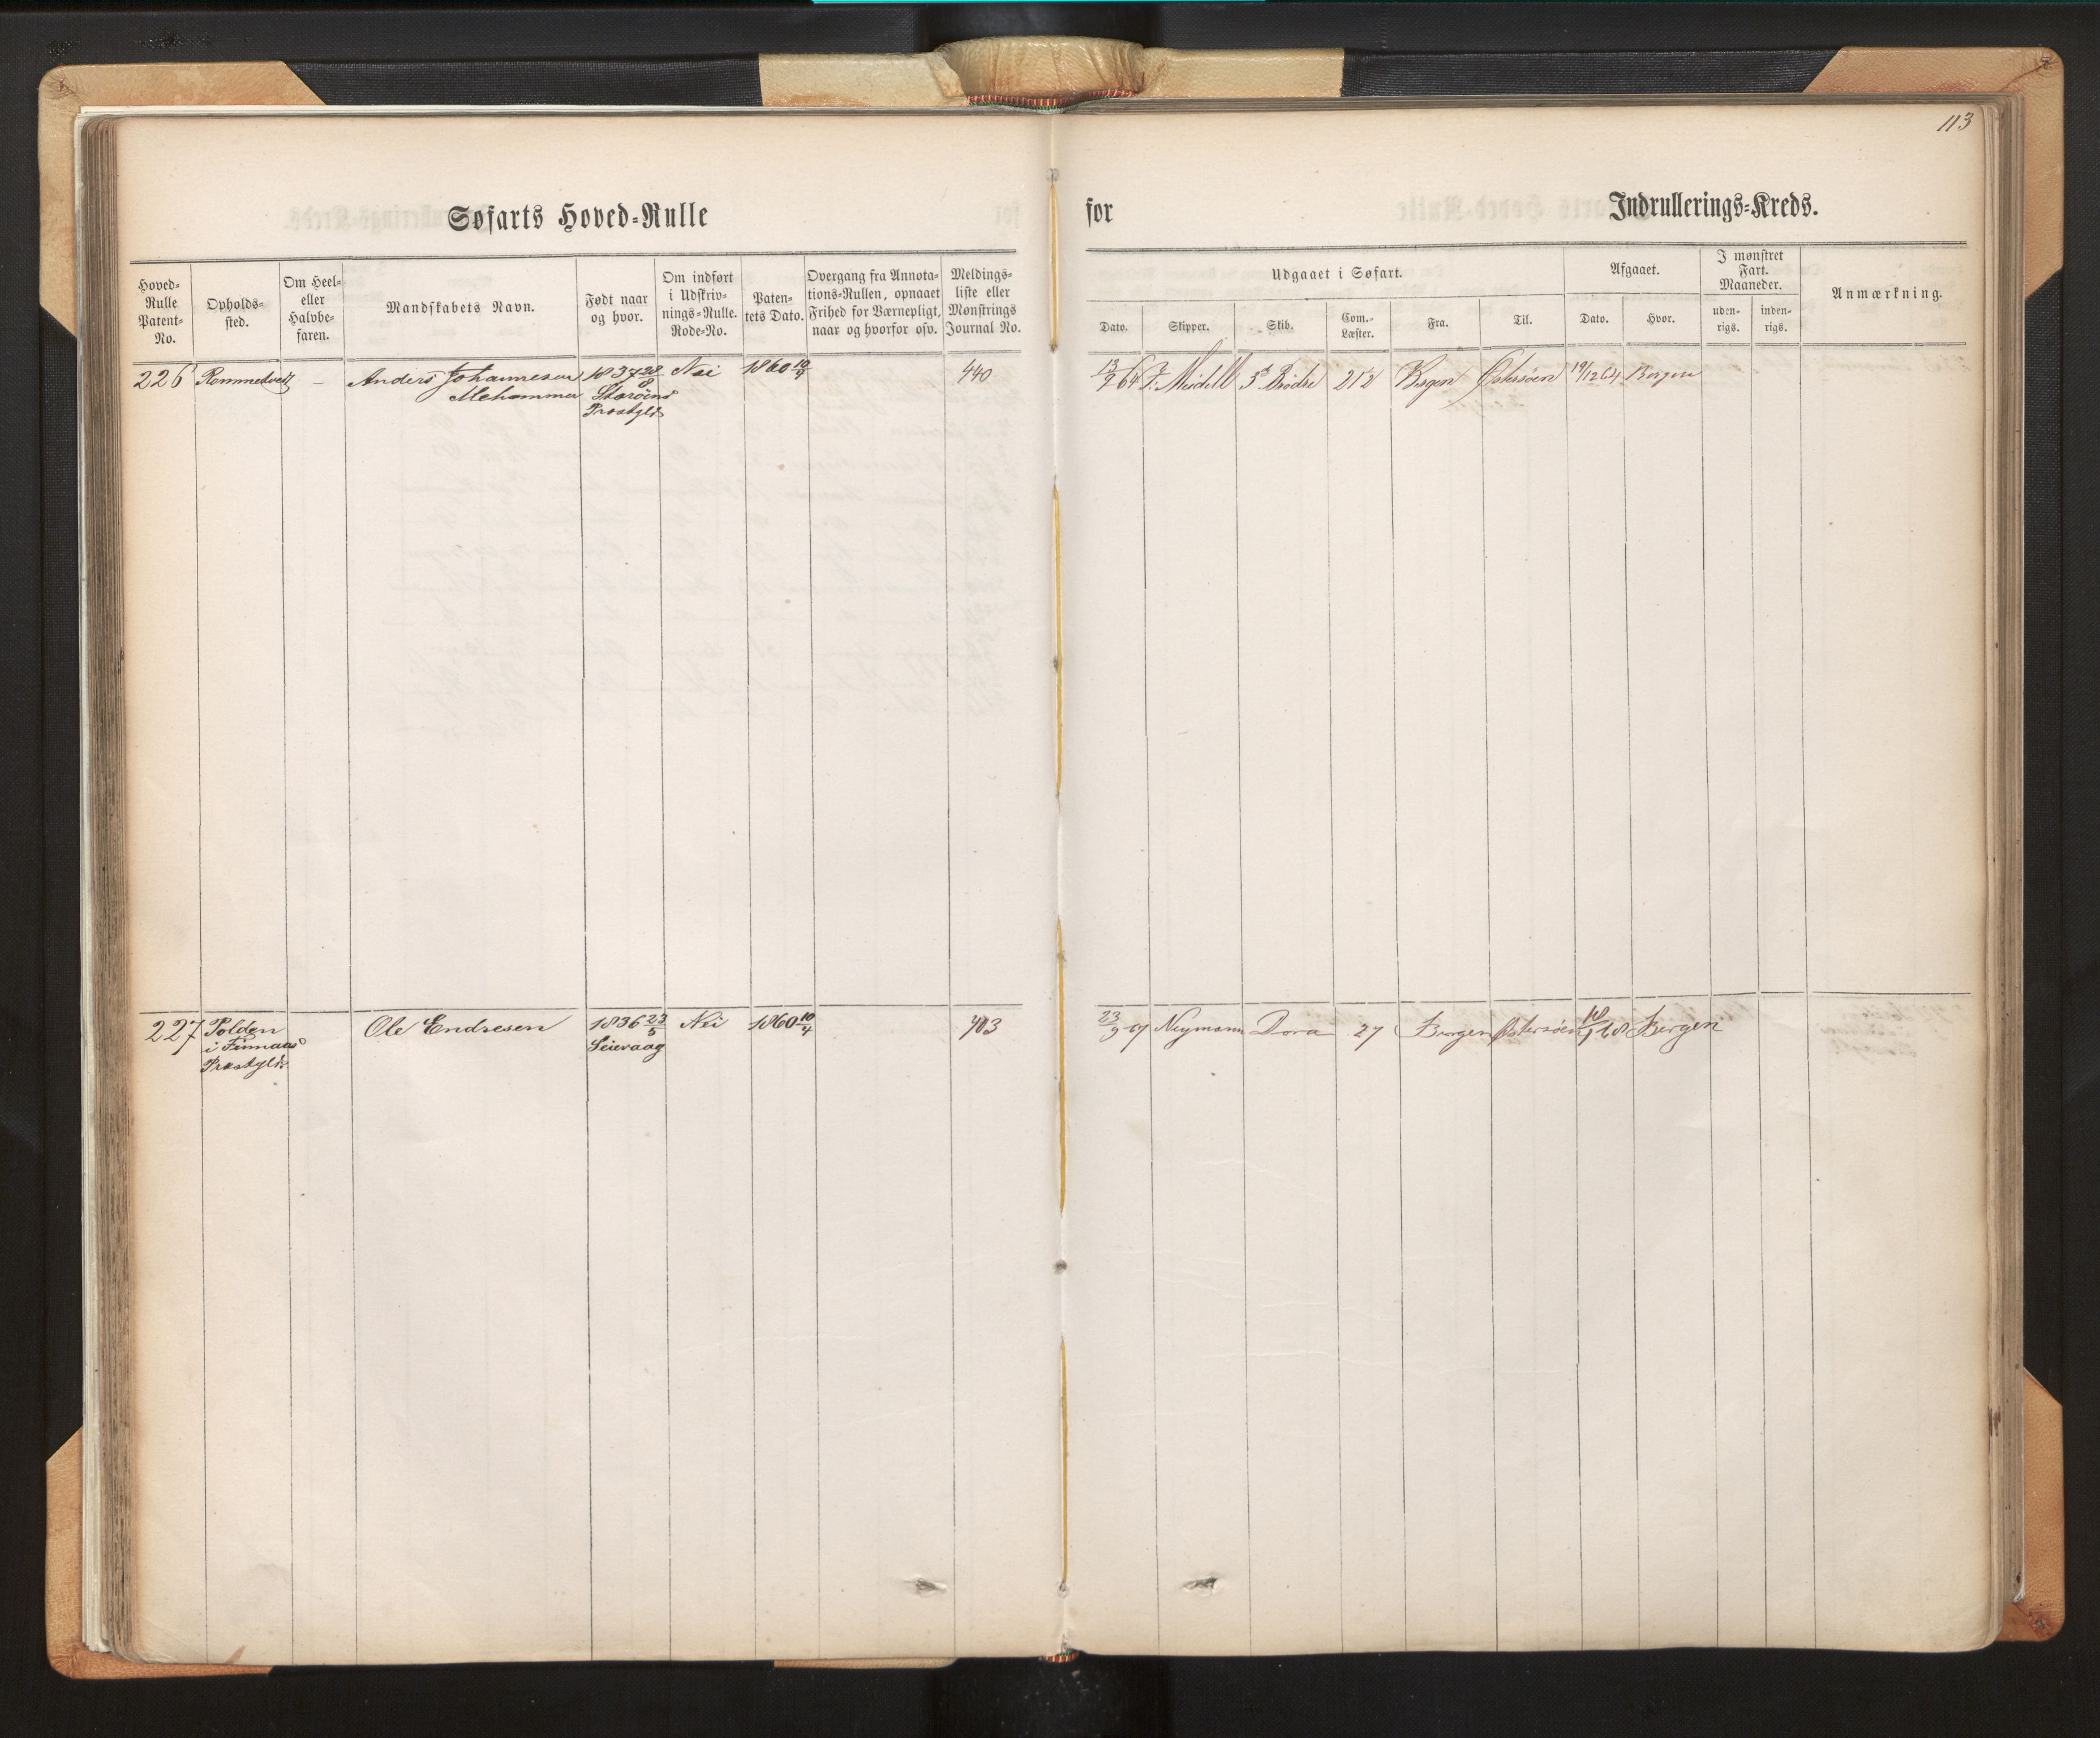 113
Søfarts Hoved-Rulle for Indrullerings-Kreds.
Hoved-Rulle Patent-No.
Opholds-sted.
Om Heel- eller Halvbe-faren.
Mandskabets Navn.
Født naar og hvor.
Om indført i Udskriv-nings-Rulle. Rode-No.
Paten-tets Dato.
Overgang fra Annota-tions-Rullen, opnaaet Frihed for Værnepligt, naar og hvorfor osv.
Meldings-liste eller Mønstrings Journal No.
Udgaaet i Søfart.
Dato.
Skipper.
Skib.
Com.-Læster.
Fra.
Til.
Afgaaet.
Dato.
Hvor.
I mønstret Fart. Maaneder.
uden-rigs.
inden-rigs.
Anmærkning.
226 Rommetveit – Anders Johannesen 1837 28/8 Nei 1860 10/4 440 13/9 64 J. Meidell 3de Brødre 21½ Bergen Østersøen 19/12 64 Bergen
Mehammer Storöens
Præstgld
227 Polden Ole Endresen 1836 23/5 Nei 1860 10/4 403 23/9 67 Neymann Dora 27 Bergen Østersøen 18/1 68 Bergen
i Finnaas Seievaag
Præstgld.